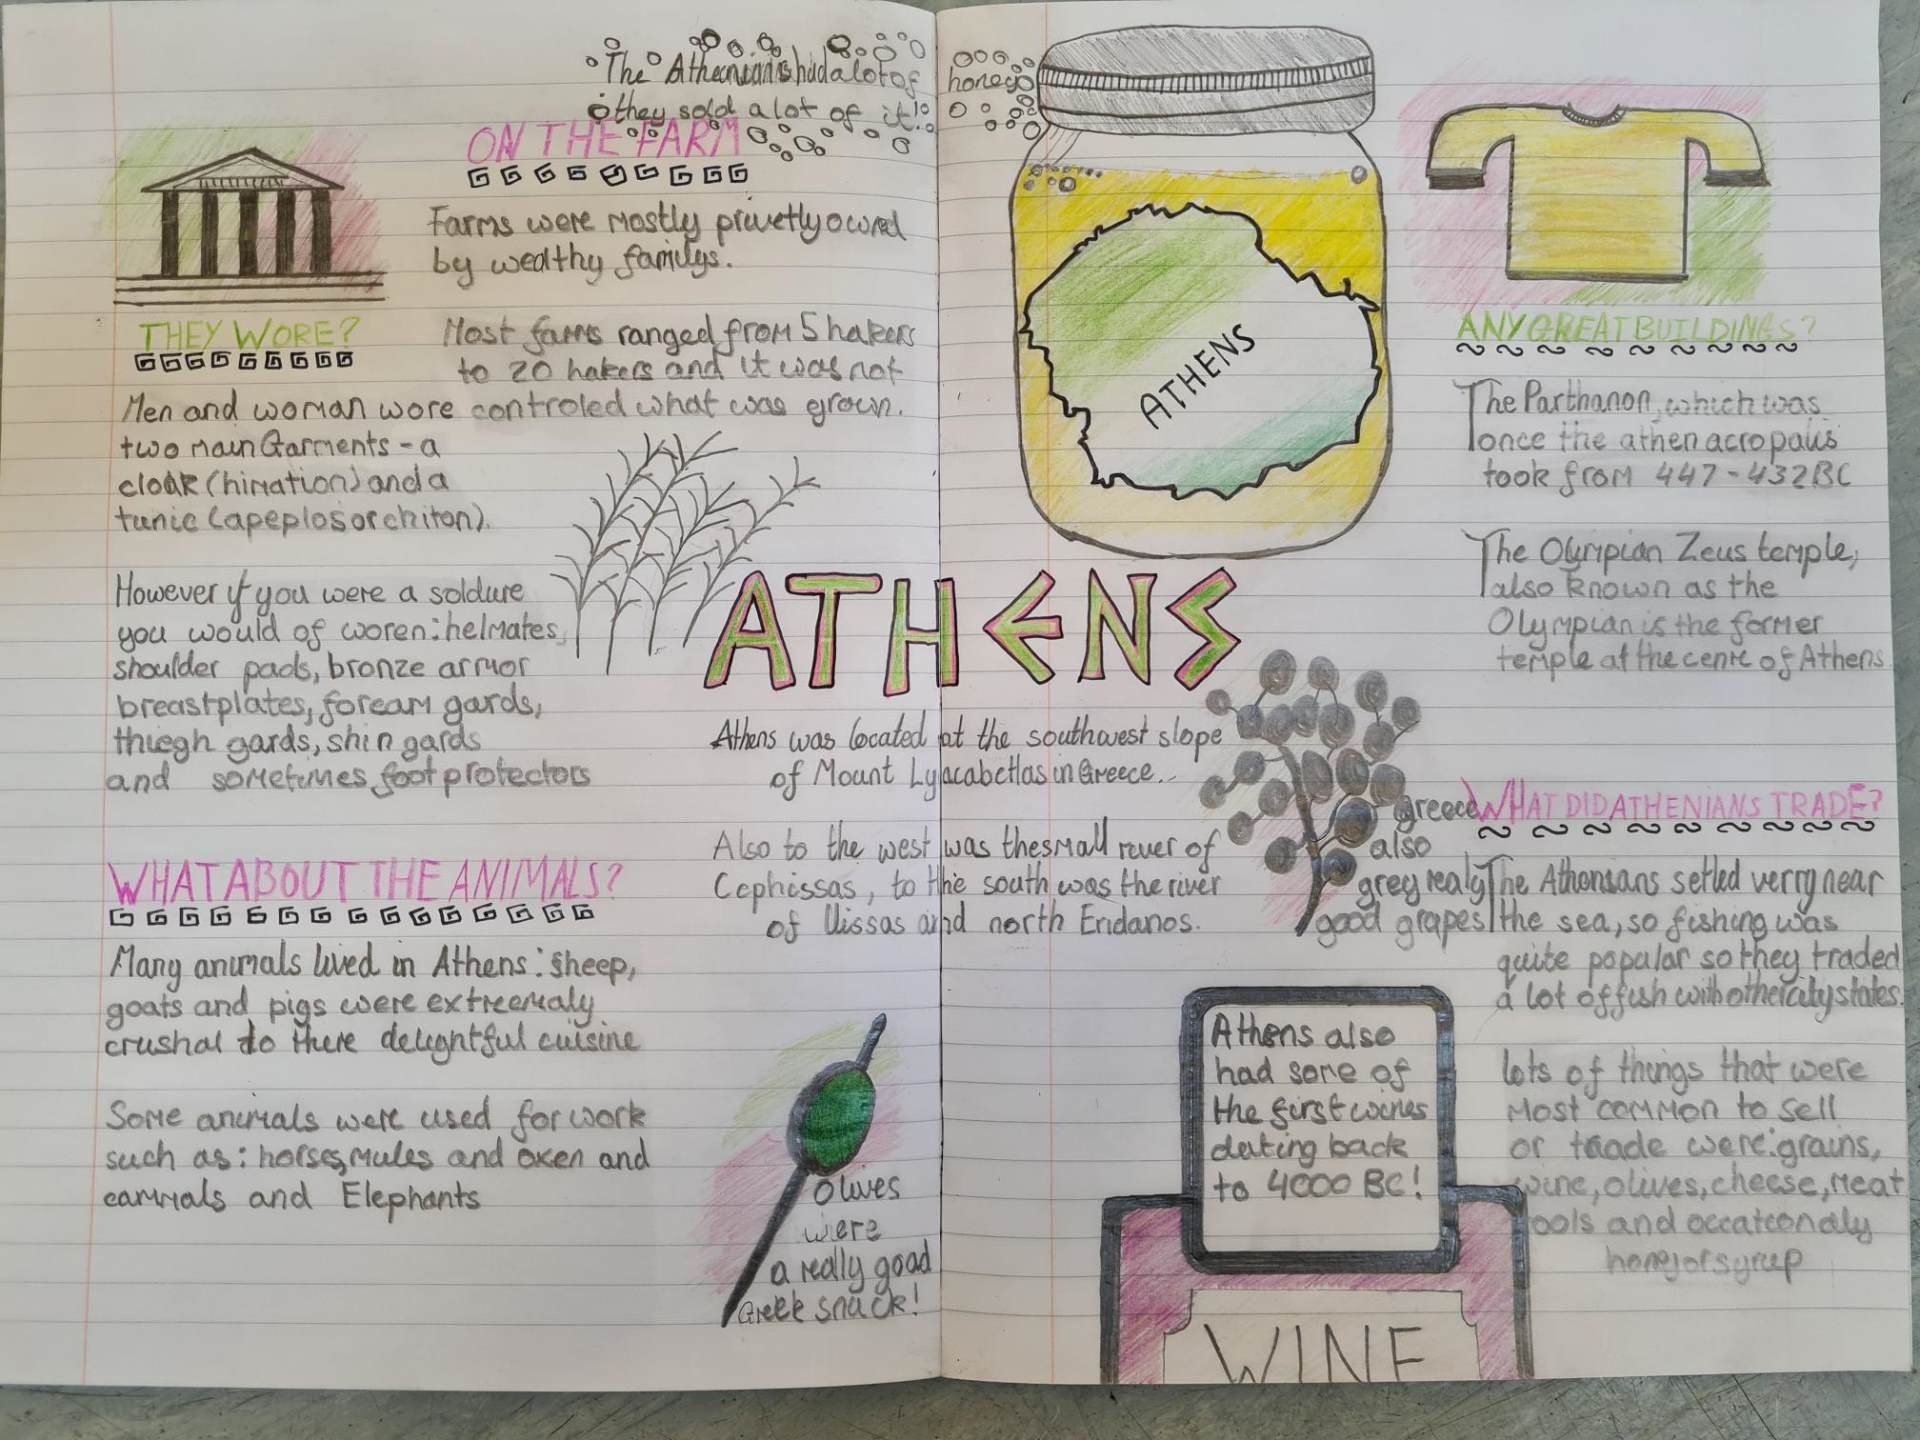 The Athenians had a lot of honey
they sold a lot of it!
ON THE FARM
Farms were mostly privetly owned
by wealthy familys.
Most farms ranged from 5 hakers
to 20 hakers and it was not
controled what was grown.
THEY WORE?
Men and woman wore
two main Garments - a
cloak (himation) and a
tunic (apeplos or chiton).
However if you were a soldure
you would of woren: helmates,
shoulder pads, bronze armor
breastplates, foream gards,
thiegh gards, shin gards
and sometimes foot protectors
WHAT ABOUT THE ANIMALS?
Many animals lived in Athens: sheep,
goats and pigs were extreemaly
crushal to there delightful cuisine
Some animals were used for work
such as: horses, mules and oxen and
cammals and Elephants
ATHENS
ATHENS
Athens was located at the southwest slope
of Mount Lyacabettas in Greece..
Also to the west was the small river of
Cephissas, to the south was the river
of Ilissas and north Eridanos.
Olives
were
a really good
Greek snack!
greece
also
grey realy
good grapes
Athens also
had some of
the first wines
dating back
to 4000 BC!
WINE
ANY GREAT BUILDINGS?
The Parthanon, which was
once the athen acropalis
took from 447-432BC
The Olympian Zeus temple,
also known as the
Olympian is the former
temple at the centre of Athens
WHAT DID ATHENIANS TRADE?
The Athenians setled verry near
the sea, so fishing was
quite popular so they traded
a lot of fish with other city states.
lots of things that were
most common to sell
or traade were: grains,
wine, olives, cheese, meat
tools and occationaly
honey or syrup